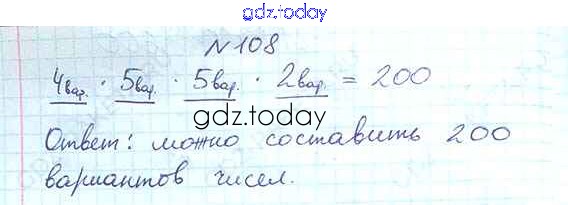 gdz.today
N 108
4вар. · 5вар. · 5вар. · 2вар. = 200
gdz.today
Ответ: можно составить 200
вариантов чисел.